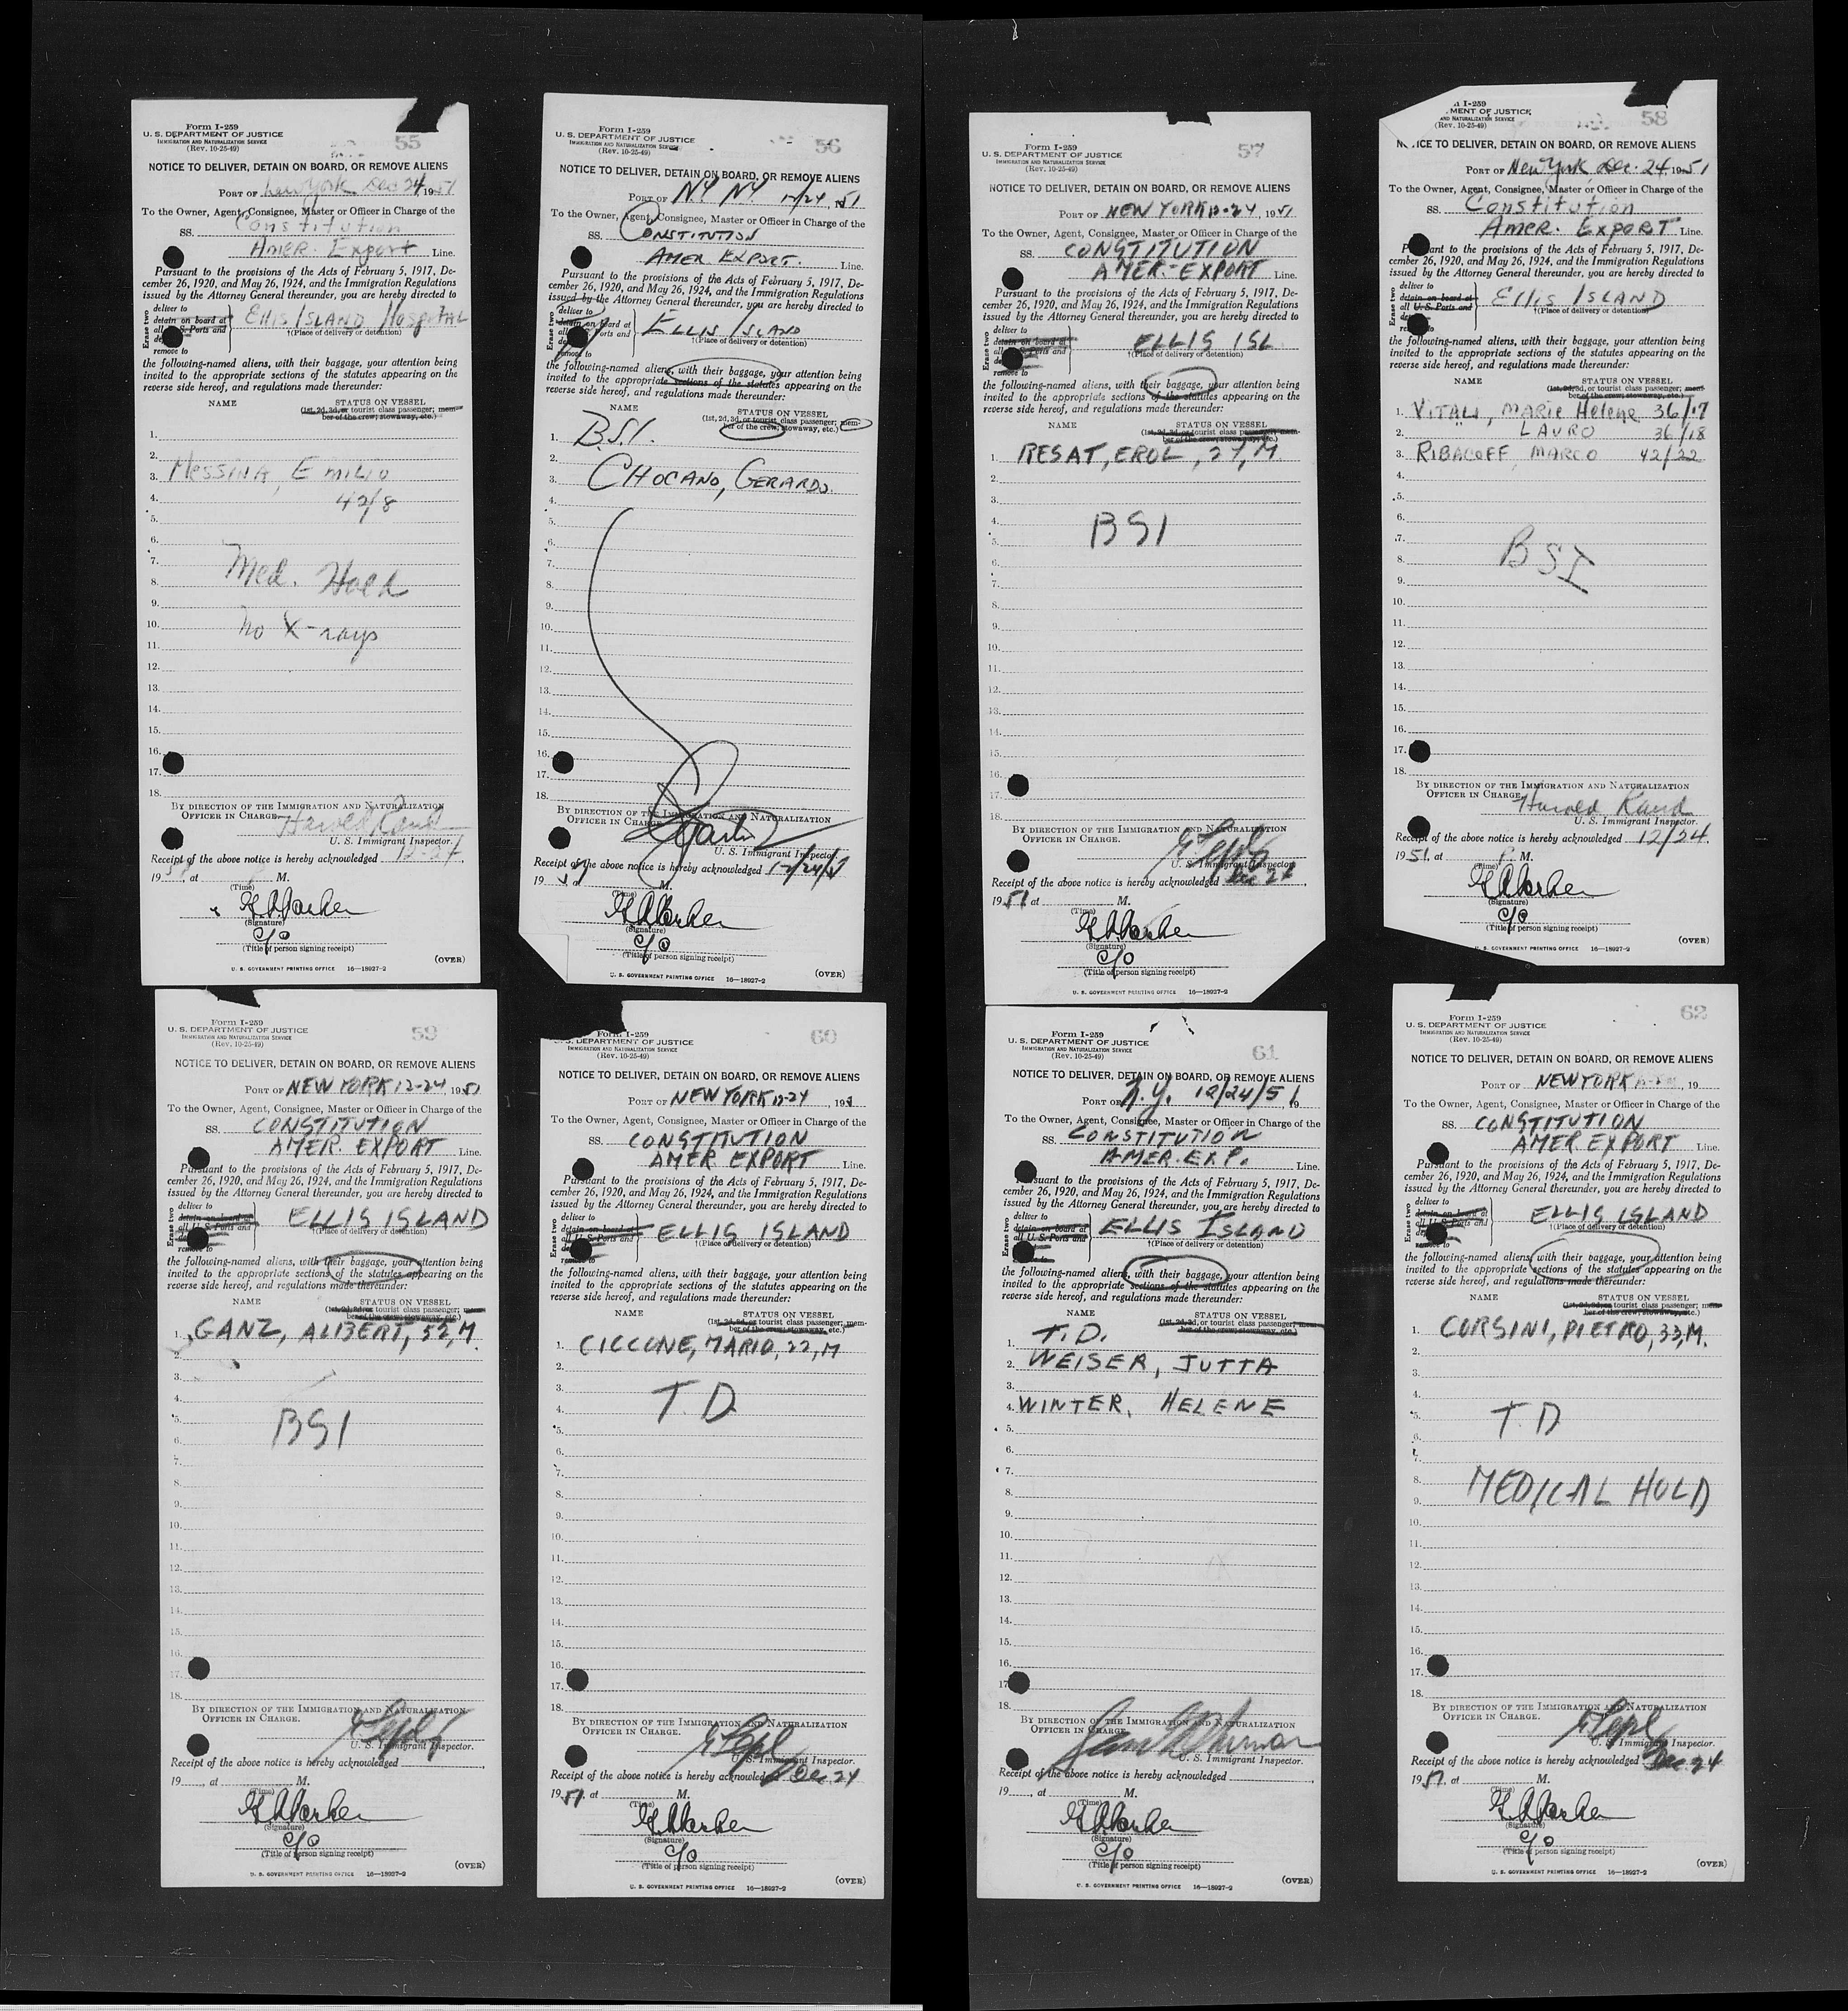 Form I-259
U. S. DEPARTMENT OF JUSTICE
IMMIGRATION AND NATURALIZATION SERVICE
(Rev. 10-25-49)
55
NOTICE TO DELIVER, DETAIN ON BOARD, OR REMOVE ALIENS
PORT OF New York Dec 24, 1951
To the Owner, Agent, Consignee, Master or Officer in Charge of the
SS. Constitution
Amer. Export Line.
Pursuant to the provisions of the Acts of February 5, 1917, De-
cember 26, 1920, and May 26, 1924, and the Immigration Regulations
issued by the Attorney General thereunder, you are hereby directed to
Erase two
deliver to
detain on board at
all U. S. Ports and
Ellis Island Hospital
†(Place of delivery or detention)
remove to
the following-named aliens, with their baggage, your attention being
invited to the appropriate sections of the statutes appearing on the
reverse side hereof, and regulations made thereunder:
NAME STATUS ON VESSEL
(1st, 2d, 3d, or tourist class passenger; mem-
ber of the crew, stowaway, etc.)
1.
2.
3. Messina, Emilio
4. 42/8
5.
6.
7. Med. Hold
8.
9.
10. No X-rays
11.
12.
13.
14.
15.
16.
17.
18.
BY DIRECTION OF THE IMMIGRATION AND NATURALIZATION
OFFICER IN CHARGE. Harold Rand
U. S. Immigrant Inspector.
Receipt of the above notice is hereby acknowledged 12-24
1951, at P M.
(Time)
(Signature)
C/O
(Title of person signing receipt)
(OVER)
U. S. GOVERNMENT PRINTING OFFICE 16—18927-2
Form I-259
U. S. DEPARTMENT OF JUSTICE
IMMIGRATION AND NATURALIZATION SERVICE
(Rev. 10-25-49)
56
NOTICE TO DELIVER, DETAIN ON BOARD, OR REMOVE ALIENS
PORT OF N.Y. N.Y. 12/24, 1951
To the Owner, Agent, Consignee, Master or Officer in Charge of the
SS. CONSTITUTION
AMER EXPORT. Line.
Pursuant to the provisions of the Acts of February 5, 1917, De-
cember 26, 1920, and May 26, 1924, and the Immigration Regulations
issued by the Attorney General thereunder, you are hereby directed to
Erase two
deliver to
detain on board at
ports and
ELLIS ISLAND
†(Place of delivery or detention)
remove to
the following-named aliens, with their baggage, your attention being
invited to the appropriate sections of the statutes appearing on the
reverse side hereof, and regulations made thereunder:
NAME STATUS ON VESSEL
(1st, 2d, 3d, or tourist class passenger; mem-
ber of the crew, stowaway, etc.)
1. B.S.I.
2.
3. CHOCANO, GERARDO.
4.
5.
6.
7.
8.
9.
10.
11.
12.
13.
14.
15.
16.
17.
18.
BY DIRECTION OF THE IMMIGRATION AND NATURALIZATION
OFFICER IN CHARGE.
U. S. Immigrant Inspector.
Receipt of the above notice is hereby acknowledged 12/24/51
19 51 M.
(Time)
(Signature)
C/O
(Title of person signing receipt)
U. S. GOVERNMENT PRINTING OFFICE 16—18927-2 (OVER)
Form I-259
U. S. DEPARTMENT OF JUSTICE
IMMIGRATION AND NATURALIZATION SERVICE
(Rev. 10-25-49)
57
NOTICE TO DELIVER, DETAIN ON BOARD, OR REMOVE ALIENS
PORT OF NEW YORK 12-24 1951
To the Owner, Agent, Consignee, Master or Officer in Charge of the
SS. CONSTITUTION
AMER-EXPORT Line.
Pursuant to the provisions of the Acts of February 5, 1917, De-
cember 26, 1920, and May 26, 1924, and the Immigration Regulations
issued by the Attorney General thereunder, you are hereby directed to
Erase two
deliver to
detain on board at
all U. S. Ports and
ELLIS ISL
†(Place of delivery or detention)
remove to
the following-named aliens, with their baggage, your attention being
invited to the appropriate sections of the statutes appearing on the
reverse side hereof, and regulations made thereunder:
NAME STATUS ON VESSEL
(1st, 2d, 3d, or tourist class passenger; mem-
ber of the crew, stowaway, etc.)
1. RESAT, EROL, 27, M
2.
3.
4. BSI
5.
6.
7.
8.
9.
10.
11.
12.
13.
14.
15.
16.
17.
18.
BY DIRECTION OF THE IMMIGRATION AND NATURALIZATION
OFFICER IN CHARGE.
U. S. Immigrant Inspector
Receipt of the above notice is hereby acknowledged Dec 24,
1951 at M.
(Time)
(Signature)
C/O
(Title of person signing receipt)
U. S. GOVERNMENT PRINTING OFFICE 16—18927-2
I-259
MENT OF JUSTICE
AND NATURALIZATION SERVICE
(Rev. 10-25-49)
58
NOTICE TO DELIVER, DETAIN ON BOARD, OR REMOVE ALIENS
PORT OF New York Dec. 24 1951
To the Owner, Agent, Consignee, Master or Officer in Charge of the
SS. Constitution
Amer. Export Line.
Pursuant to the provisions of the Acts of February 5, 1917, De-
cember 26, 1920, and May 26, 1924, and the Immigration Regulations
issued by the Attorney General thereunder, you are hereby directed to
Erase two
deliver to
detain on board at
all U. S. Ports and
Ellis Island
†(Place of delivery or detention)
the following-named aliens, with their baggage, your attention being
invited to the appropriate sections of the statutes appearing on the
reverse side hereof, and regulations made thereunder:
NAME STATUS ON VESSEL
(1st, 2d, 3d, or tourist class passenger; mem-
ber of the crew, stowaway, etc.)
1. Vitali, Marie Helene 36/17
2. " Lauro 36/18
3. Ribacoff, Marco 42/22
4.
5.
6.
7.
8. BSI
9.
10.
11.
12.
13.
14.
15.
16.
17.
18.
BY DIRECTION OF THE IMMIGRATION AND NATURALIZATION
OFFICER IN CHARGE. Harold Rand
U. S. Immigrant Inspector.
Receipt of the above notice is hereby acknowledged 12/24
1951, at P. M.
(Time)
(Signature)
C/O
(Title of person signing receipt)
(OVER)
U. S. GOVERNMENT PRINTING OFFICE 16—18927-2
Form I-259
U. S. DEPARTMENT OF JUSTICE
IMMIGRATION AND NATURALIZATION SERVICE
(Rev. 10-25-49)
59
NOTICE TO DELIVER, DETAIN ON BOARD, OR REMOVE ALIENS
PORT OF NEW YORK 12-24, 1951
To the Owner, Agent, Consignee, Master or Officer in Charge of the
SS. CONSTITUTION
AMER. EXPORT Line.
Pursuant to the provisions of the Acts of February 5, 1917, De-
cember 26, 1920, and May 26, 1924, and the Immigration Regulations
issued by the Attorney General thereunder, you are hereby directed to
Erase two
deliver to
detain on board at
all U. S. Ports and
ELLIS ISLAND
†(Place of delivery or detention)
remove to
the following-named aliens, with their baggage, your attention being
invited to the appropriate sections of the statutes appearing on the
reverse side hereof, and regulations made thereunder:
NAME STATUS ON VESSEL
(1st, 2d, 3d, or tourist class passenger; mem-
ber of the crew, stowaway, etc.)
1. GANZ, ALBERT, 52, M.
2.
3.
4.
5. BSI
6.
7.
8.
9.
10.
11.
12.
13.
14.
15.
16.
17.
18.
BY DIRECTION OF THE IMMIGRATION AND NATURALIZATION
OFFICER IN CHARGE.
U. S. Immigrant Inspector.
Receipt of the above notice is hereby acknowledged
19 , at M.
(Time)
(Signature)
C/O
(Title of person signing receipt)
(OVER)
U. S. GOVERNMENT PRINTING OFFICE 16—18927-2
Form I-259
U. S. DEPARTMENT OF JUSTICE
IMMIGRATION AND NATURALIZATION SERVICE
(Rev. 10-25-49)
60
NOTICE TO DELIVER, DETAIN ON BOARD, OR REMOVE ALIENS
PORT OF NEW YORK 12-24, 1951
To the Owner, Agent, Consignee, Master or Officer in Charge of the
SS. CONSTITUTION
AMER EXPORT Line.
Pursuant to the provisions of the Acts of February 5, 1917, De-
cember 26, 1920, and May 26, 1924, and the Immigration Regulations
issued by the Attorney General thereunder, you are hereby directed to
Erase two
deliver to
detain on board at
all U. S. Ports and
ELLIS ISLAND
†(Place of delivery or detention)
remove to
the following-named aliens, with their baggage, your attention being
invited to the appropriate sections of the statutes appearing on the
reverse side hereof, and regulations made thereunder:
NAME STATUS ON VESSEL
(1st, 2d, 3d, or tourist class passenger; mem-
ber of the crew, stowaway, etc.)
1. CICCONE, MARIO, 22, M
2.
3. T.D.
4.
5.
6.
7.
8.
9.
10.
11.
12.
13.
14.
15.
16.
17.
18.
BY DIRECTION OF THE IMMIGRATION AND NATURALIZATION
OFFICER IN CHARGE.
U. S. Immigrant Inspector.
Receipt of the above notice is hereby acknowledged Dec 24
1951, at M.
(Time)
(Signature)
C/O
(Title of person signing receipt)
(OVER)
U. S. GOVERNMENT PRINTING OFFICE 16—18927-2
Form I-259
U. S. DEPARTMENT OF JUSTICE
IMMIGRATION AND NATURALIZATION SERVICE
(Rev. 10-25-49)
61
NOTICE TO DELIVER, DETAIN ON BOARD, OR REMOVE ALIENS
PORT OF N.Y. 12/24/51, 19
To the Owner, Agent, Consignee, Master or Officer in Charge of the
SS. CONSTITUTION
AMER. EXP. Line.
Pursuant to the provisions of the Acts of February 5, 1917, De-
cember 26, 1920, and May 26, 1924, and the Immigration Regulations
issued by the Attorney General thereunder, you are hereby directed to
Erase two
deliver to
detain on board at
all U. S. Ports and
ELLIS ISLAND
†(Place of delivery or detention)
remove to
the following-named aliens, with their baggage, your attention being
invited to the appropriate sections of the statutes appearing on the
reverse side hereof, and regulations made thereunder:
NAME STATUS ON VESSEL
(1st, 2d, 3d, or tourist class passenger; mem-
ber of the crew, stowaway, etc.)
1. T.D.
2. WEISER, JUTTA
3.
4. WINTER, HELENE
5.
6.
7.
8.
9.
10.
11.
12.
13.
14.
15.
16.
17.
18.
BY DIRECTION OF THE IMMIGRATION AND NATURALIZATION
OFFICER IN CHARGE.
U. S. Immigrant Inspector.
Receipt of the above notice is hereby acknowledged
19 , at M.
(Time)
(Signature)
C/O
(Title of person signing receipt)
(OVER)
U. S. GOVERNMENT PRINTING OFFICE 16—18927-2
Form I-259
U. S. DEPARTMENT OF JUSTICE
IMMIGRATION AND NATURALIZATION SERVICE
(Rev. 10-25-49)
62
NOTICE TO DELIVER, DETAIN ON BOARD, OR REMOVE ALIENS
PORT OF NEW YORK , 19
To the Owner, Agent, Consignee, Master or Officer in Charge of the
SS. CONSTITUTION
AMER EXPORT Line.
Pursuant to the provisions of the Acts of February 5, 1917, De-
cember 26, 1920, and May 26, 1924, and the Immigration Regulations
issued by the Attorney General thereunder, you are hereby directed to
Erase two
deliver to
detain on board at
all U. S. Ports and
ELLIS ISLAND
†(Place of delivery or detention)
remove to
the following-named aliens, with their baggage, your attention being
invited to the appropriate sections of the statutes appearing on the
reverse side hereof, and regulations made thereunder:
NAME STATUS ON VESSEL
(1st, 2d, 3d, or tourist class passenger; mem-
ber of the crew, stowaway, etc.)
1. CORSINI, PIETRO, 33, M.
2.
3.
4.
5. T.D
6.
7.
8. MEDICAL HOLD
9.
10.
11.
12.
13.
14.
15.
16.
17.
18.
BY DIRECTION OF THE IMMIGRATION AND NATURALIZATION
OFFICER IN CHARGE.
U. S. Immigrant Inspector.
Receipt of the above notice is hereby acknowledged Dec. 24
1951, at M.
(Time)
(Signature)
C/O
(Title of person signing receipt)
(OVER)
U. S. GOVERNMENT PRINTING OFFICE 16—18927-2